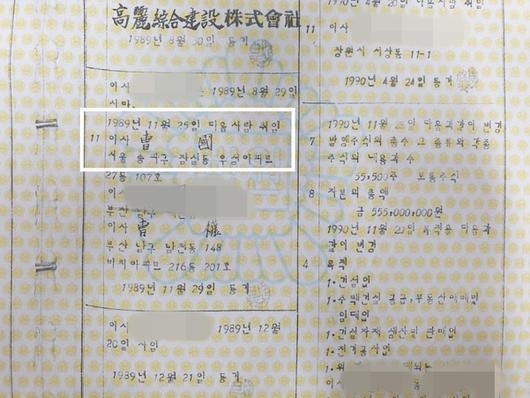 高麗綜合建設株式會社
1989년 8월 30일 등기
이사 1989년 8월 29일
사임.
1989년 11월 29일 다음사람 취임
11 이사 曺 國
서울 송파구 잠실동 우성아파트
27동 107호
이사
부산 남구
이사 曺 權
부산 남구 남천동 148
비치아파트 216동 201호
1989년 11월 29일 등기
이사 1989년 12월
20일 사임
1989년 12월 21일 등기
11 이사
창원시 서상동 11-1
1990년 4월 24일 등기
1990년 11월 다음과같이 변경
7 발행주식의 총수 그 종류와 각종
주식의 내용과 수
55,500주 보통주식
8 자본의 총액
금 555,000,000원
1990년 11월 목적을 다음과
같이 변경
4 목적
1. 건설업
1. 주택건설 공급, 부동산매매및
임대업
1. 건설자재 생산및 판매업
1. 전기공사업
이사